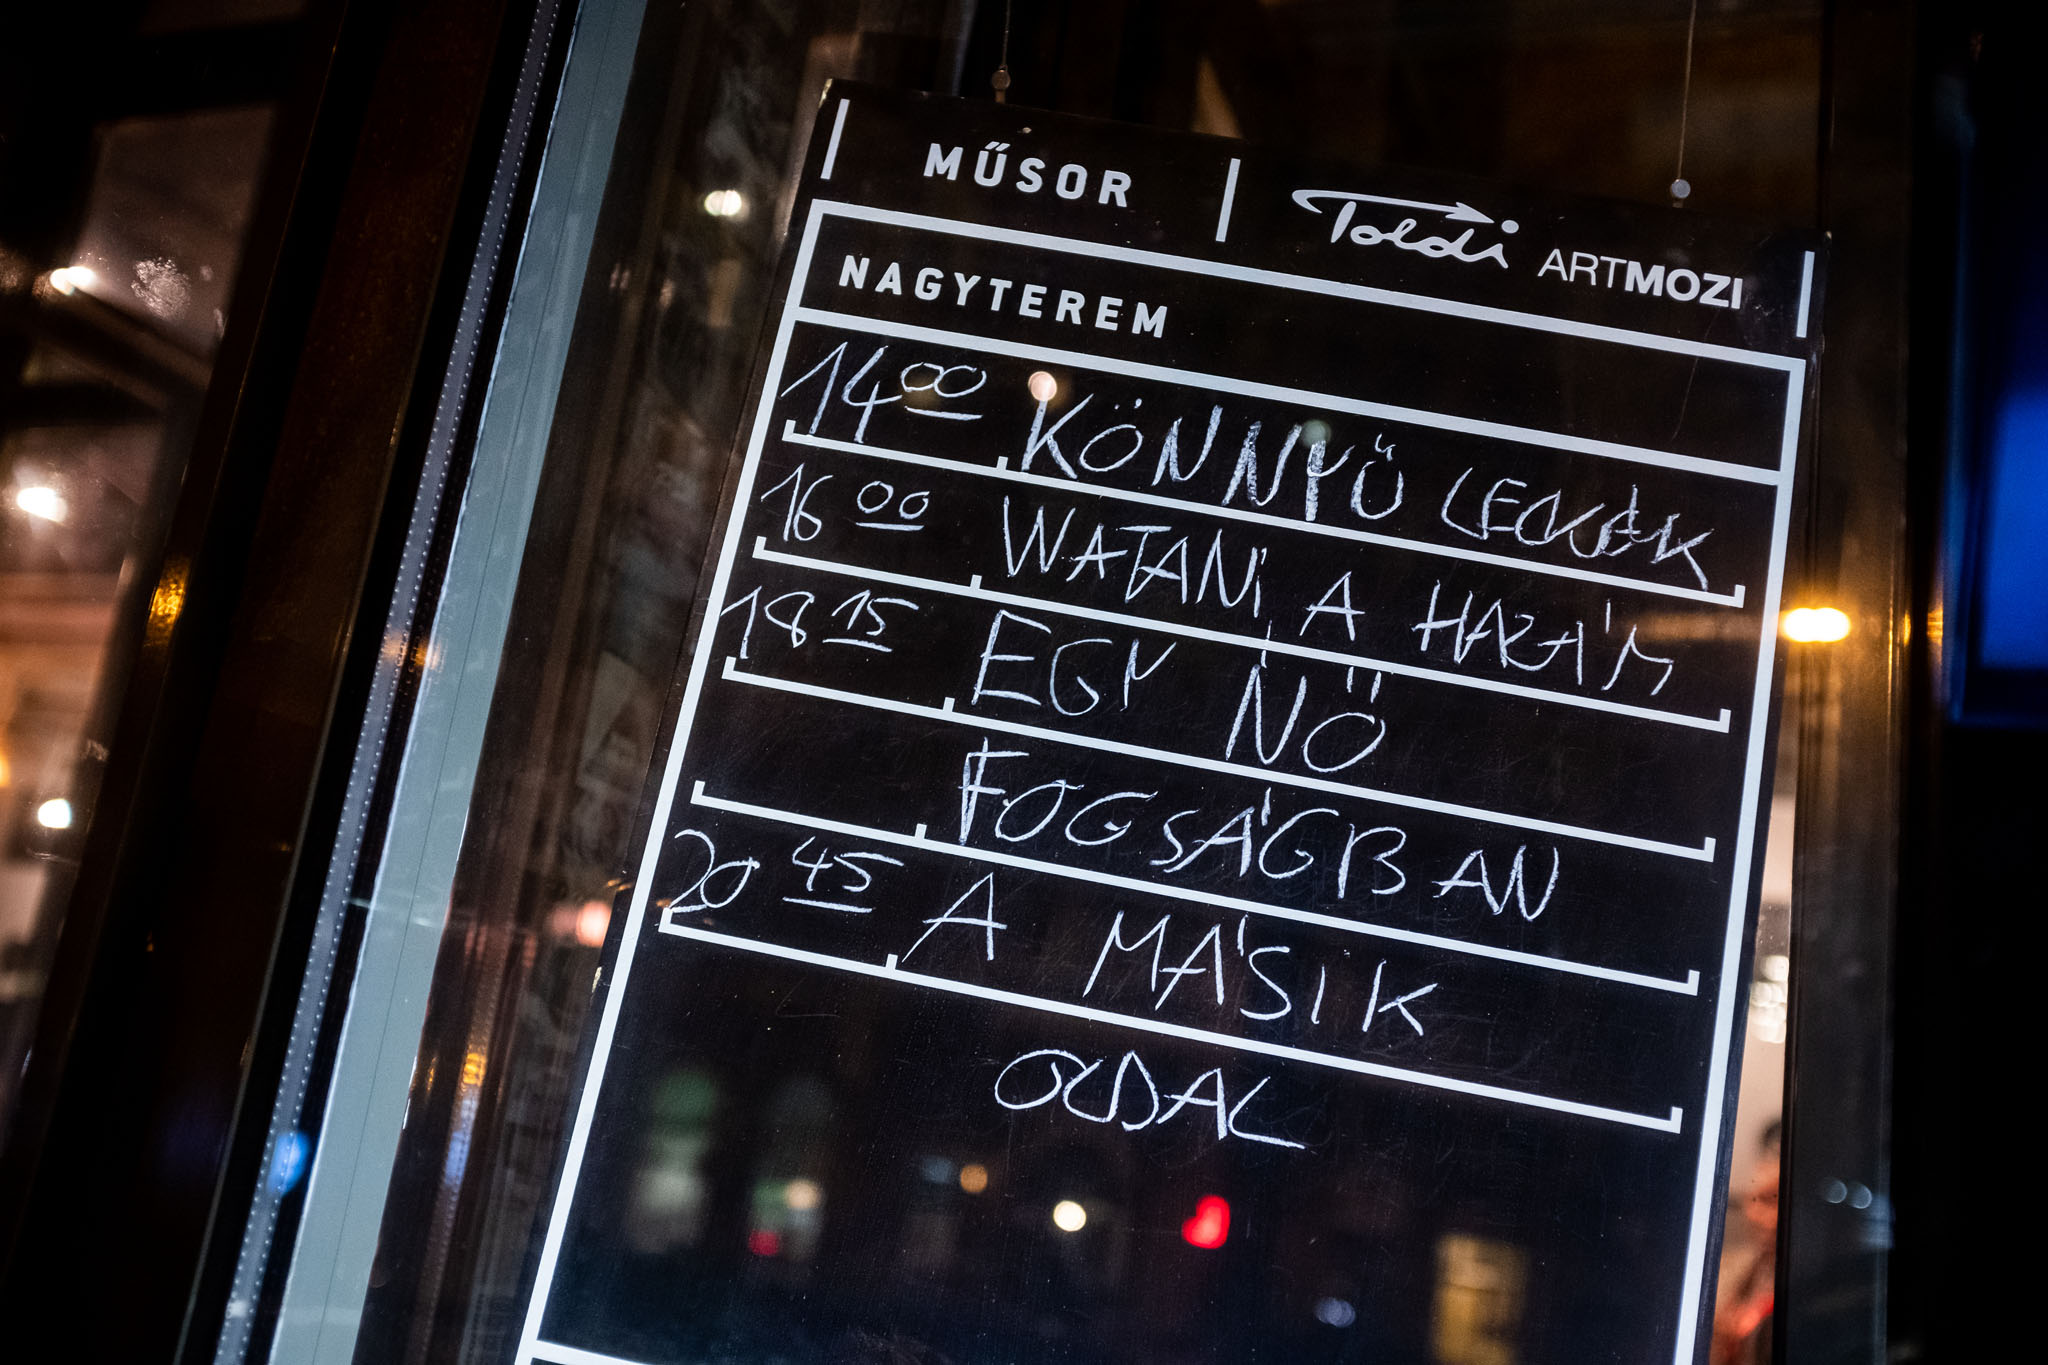 MŰSOR
Toldi ARTMOZI
NAGYTEREM
14 00 KÖNNYŰ LECKÉK
16 00 WATANI A HAZÁM
18 15 EGY NŐ
FOGSÁGBAN
20 45 A MÁSIK
OLDAL